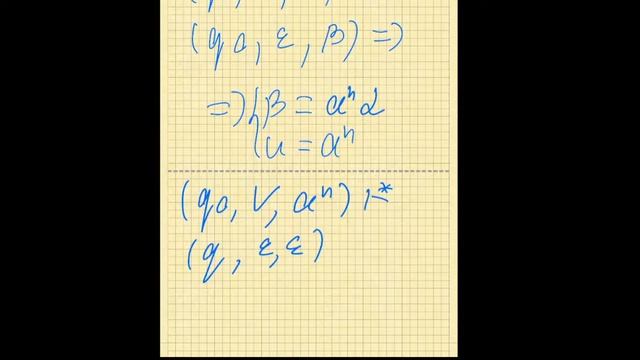 (q0, ε, β) ⇒
⇒ { β = aⁿα
u = aⁿ
(q0, V, aⁿ) ⊢*
(q, ε, ε)